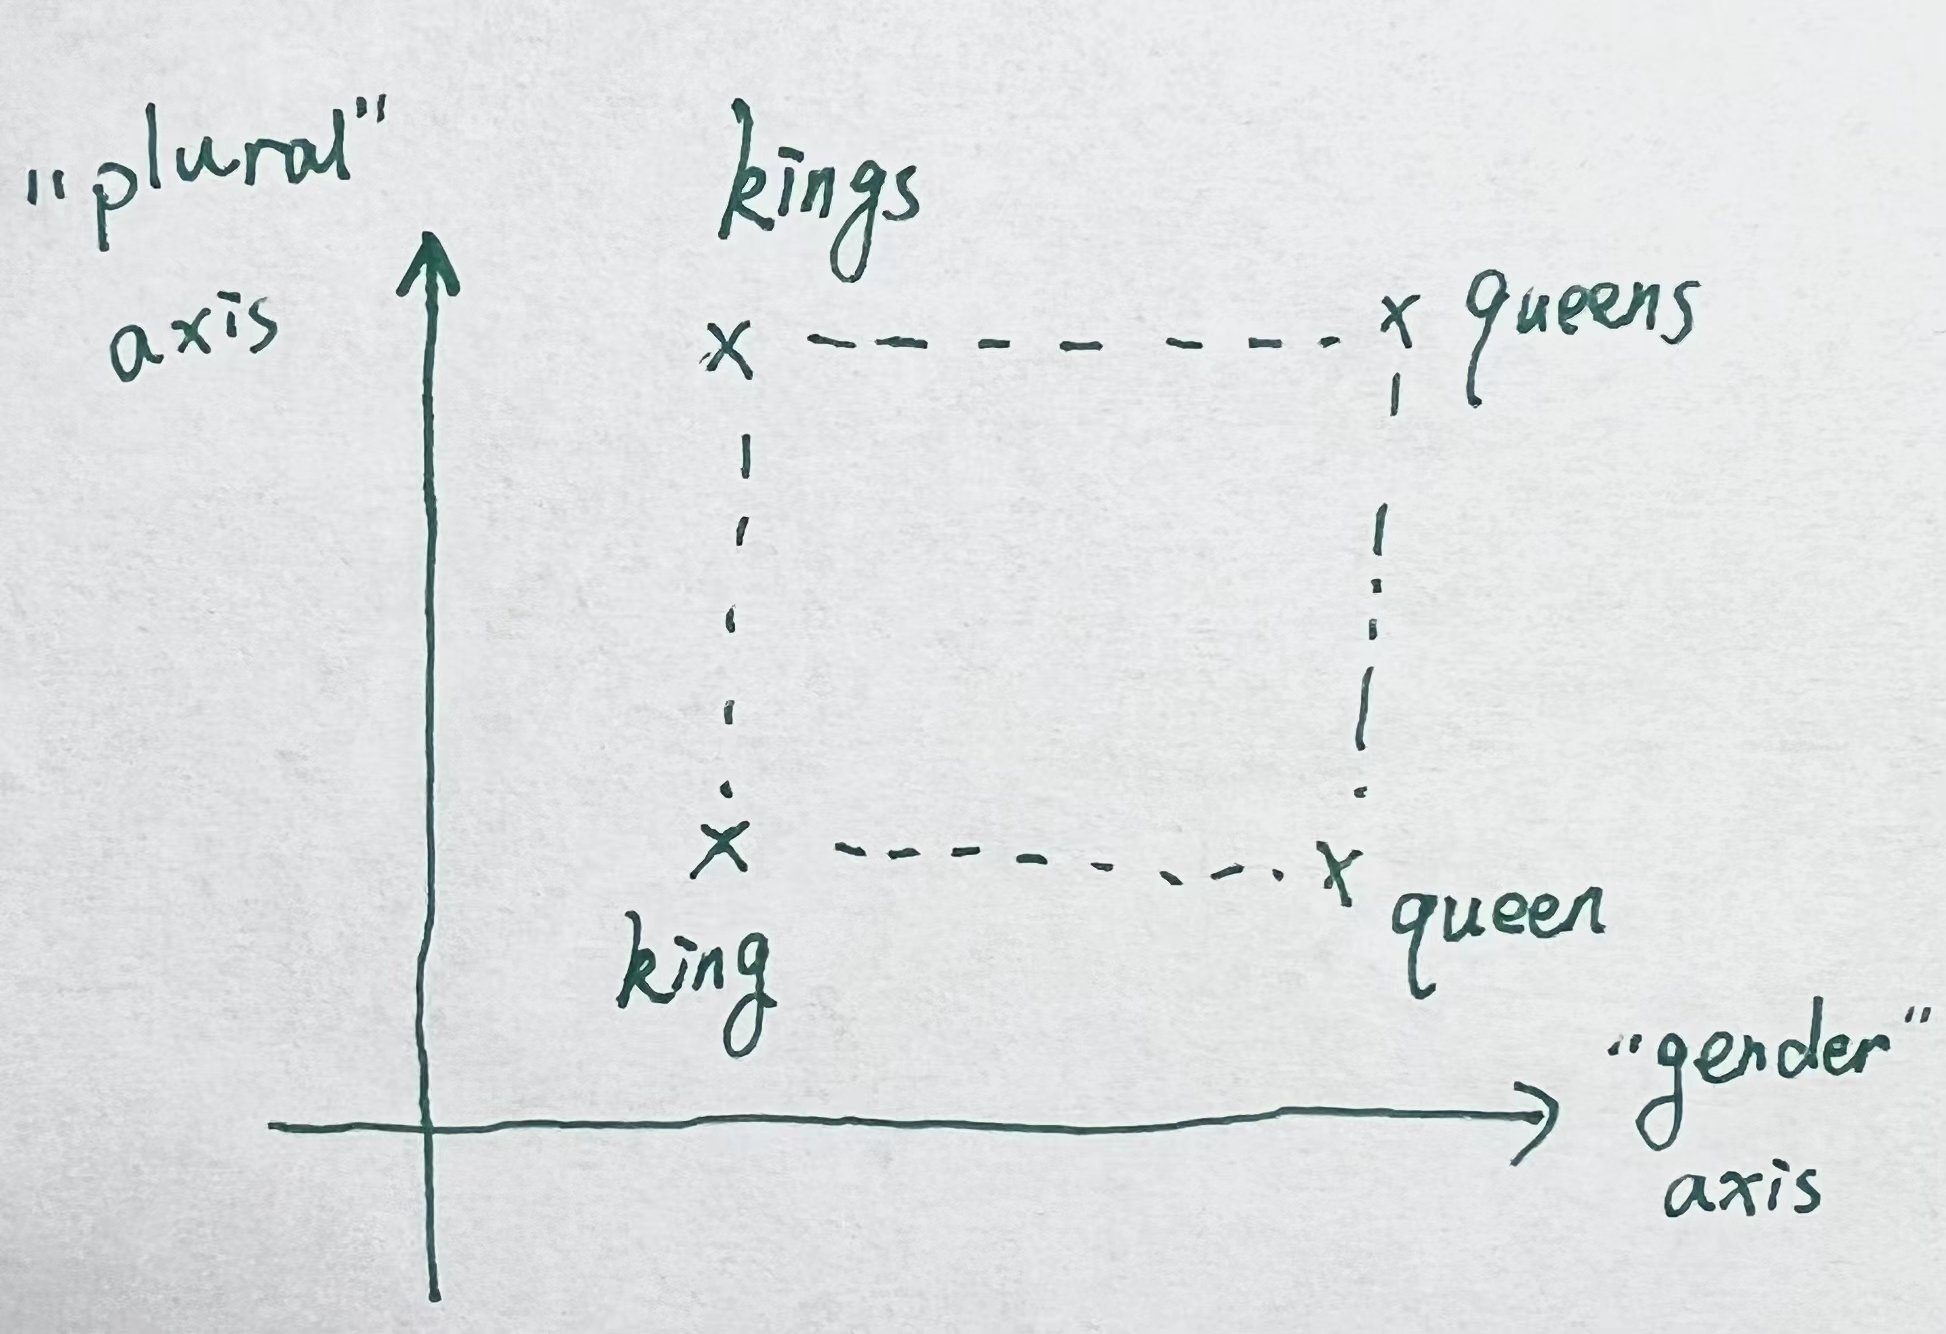 "plural"
axis
kings
queens
king
queen
"gender"
axis